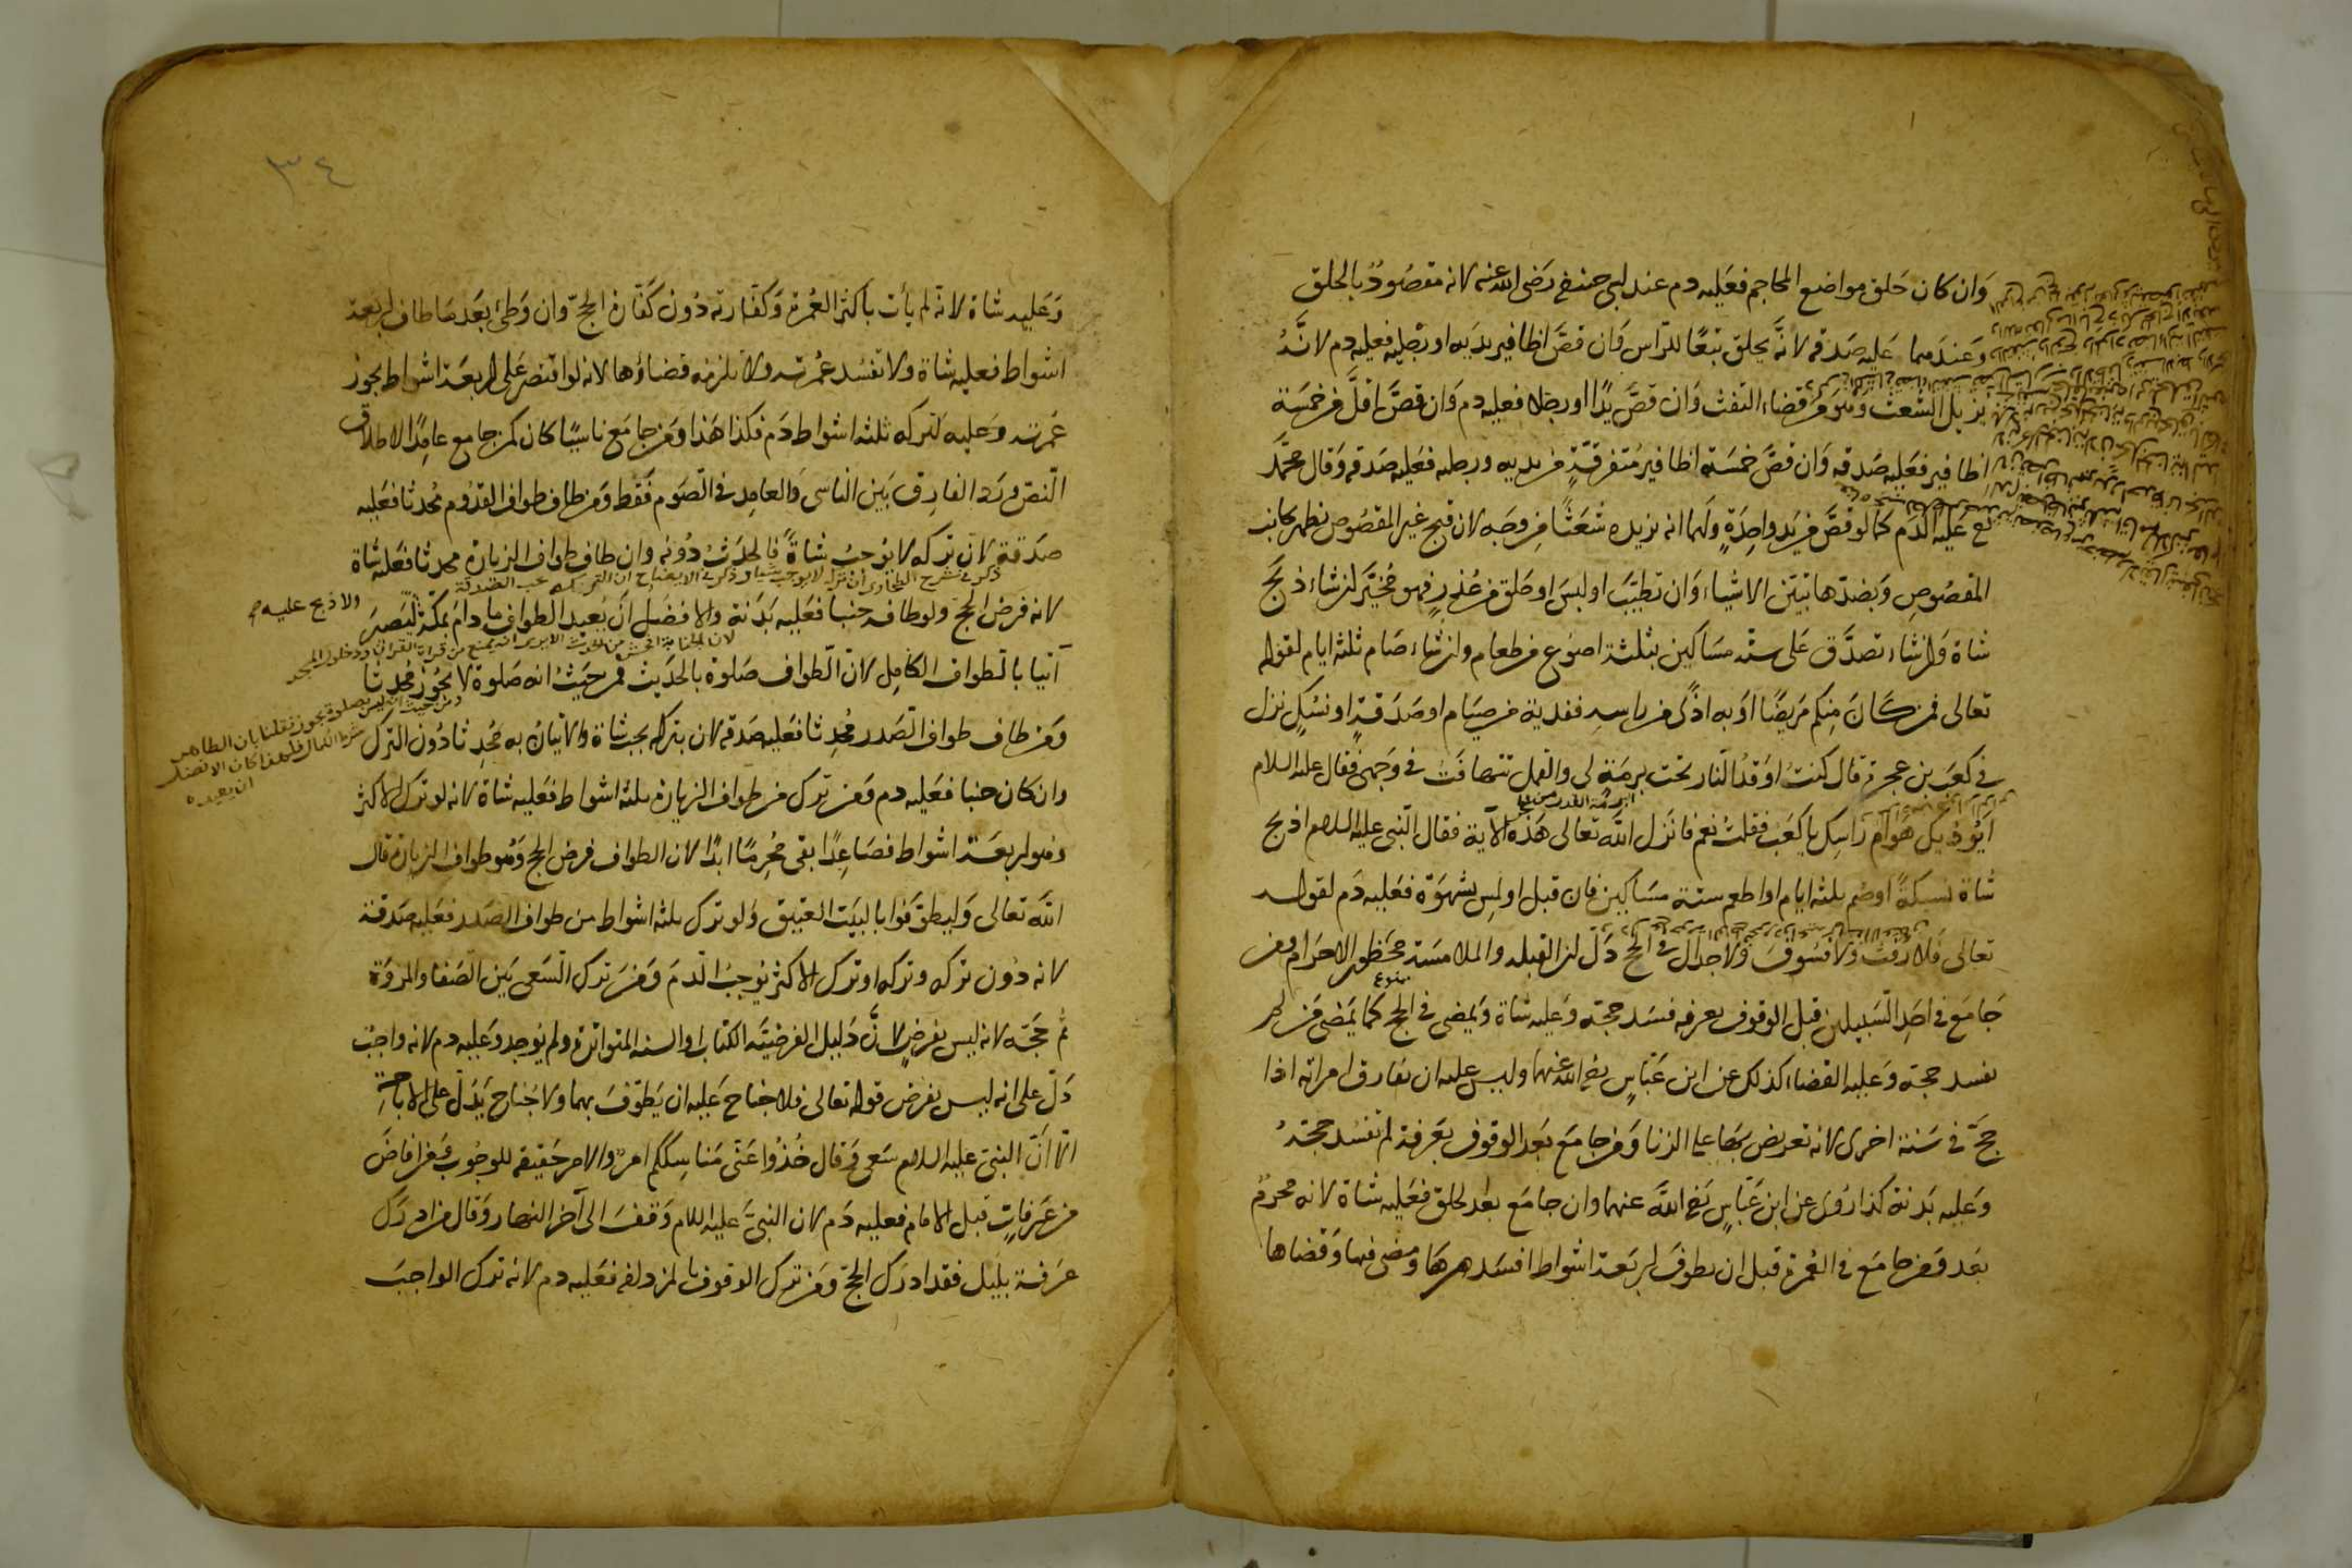 وان كان حلق مواضع المحاجم فعليه دم عند ابي حنيفة رضى الله عنه لانه مقصود بالحلق
وعندهما عليه صدقة لانه يحلق تبعا للراس وان قص اظافير يديه او رجليه فعليه دم لانه
يزيل الشعث وهو من قضاء التفث وان قص يدا او رجلا فعليه دم وان قص اقل من خمسة
اظافير فعليه صدقه وان قص خمسة اظافير متفرقة من يديه ورجليه فعليه صدقه وقال محمد
عليه الدم كما لو قص من يد واحدة ولهما انه يزيده شعثا من وجه لان قبح غير المقصوص يظهر بجانب
المقصوص وبضدها تتبين الاشياء وان تطيب او لبس او حلق من عذر فهو مخير ان شاء ذبح
شاة وان شاء تصدق على سته مساكين بثلثة اصوع من طعام وان شاء صام ثلثة ايام لقوله
تعالى فمن كان منكم مريضا او به اذى من راسه ففدية من صيام او صدقة او نسك نزل
في كعب بن عجرة قال كنت اوقد النار تحت برمة لى والقمل تتهافت في وجهى فقال عليه السلام
ايوذيك هوام راسك يا كعب فقلت نعم فانزل الله تعالى هذه الآية فقال النبى عليه السلام اذبح
شاة نسيكة او صم ثلثه ايام او اطعم ستة مساكين فان قبل او لمس بشهوة فعليه دم لقوله
تعالى فلا رفث ولا فسوق ولا جدال في الحج دل ان القبله والملامسة محظور الاحرام ومن
جامع في احد السبيلين قبل الوقوف بعرفه فسد حجته وعليه شاة ويمضى في الحج كما يمضى من لم
يفسد حجته وعليه القضاء كذلك عن ابن عباس رضى الله عنهما وليس عليه ان يفارق امراته اذا
حج في سنة اخرى لانه تعريض بهما على الزنا ومن جامع بعد الوقوف بعرفة لم تفسد حجته
وعليه بدنة كذا روى عن ابن عباس رضى الله عنهما وان جامع بعد الحلق فعليه شاة لانه محرم
بعد ومن جامع في العمرة قبل ان يطوف اربعة اشواط افسدها ومضى فيها وقضاها
٣٤
وعليه شاة لانه لم يأت باكثر العمرة وكفارته دون كفارة الحج وان وطئ بعد ما طاف اربعة
اشواط فعليه شاة ولا تفسد عمرته ولا يلزمه قضاؤها لانه لو اقتصر على اربعة اشواط يجوز
عمرته وعليه لتركه ثلثه اشواط دم فكذا هذا ومن جامع ناسيا كان كمن جامع عامدا لاطلاق
النص ورد الفارق بين الناسى والعامد في الصوم فقط ومن طاف طواف القدوم محدثا فعليه
صدقة لان تركه لا يوجب شاة فالحدث دونه وان طاف طواف الزيارة محدثا فعليه شاة
ذكر في شرح الطحاوى ان تركه لا يوجب شيا وذكر في الايضاح ان التركه يجب الصدقة
لانه فرض الحج ولو طاف جنبا فعليه بدنة والافضل ان يعيد الطواف ما دام بمكة ليصير
ولا ذبح عليه
لان الجنابة افحش من الحدث الايرى انه يمنع من قراة القران ودخول المسجد
آتيا بالطواف الكامل لان الطواف صلوة بالحديث فمن حيث انه صلوة لا يجوز محدثا
ومن حيث انه ليس بصلوة يجوز فقلنا بان الطاهر
شرط الكمال فلهذا كان الافضل
ان يعيده
ومن طاف طواف الصدر محدثا فعليه صدقه لان بتركه يجب شاة والاتيان به محدثا دون الترك
وان كان جنبا فعليه دم ومن ترك من طواف الزيارة ثلثه اشواط فعليه شاة لانه لو ترك الاكثر
وهو اربعة اشواط فصاعدا بقى محرما ابدا لان الطواف فرض الحج وهو طواف الزيارة قال
الله تعالى وليطوفوا بالبيت العتيق ولو ترك ثلثه اشواط من طواف الصدر فعليه صدقة
لانه دون تركه وتركه او ترك الاكثر يوجب الدم ومن ترك السعى بين الصفا والمروة
تم حجته لانه ليس بفرض لان دليل الفرضية الكتاب او السنه المتواترة ولم يوجد وعليه دم لانه واجب
دل على انه ليس بفرض قوله تعالى فلا جناح عليه ان يطوف بهما ولا جناح يدل على الاباحة
الا ان النبى عليه السلام سعى وقال خذوا عنى مناسككم امر والامر حقيقه للوجوب ومن افاض
من عرفات قبل الامام فعليه دم لان النبى عليه السلام وقف الى آخر النهار وقال من ادرك
عرفة بليل فقد ادرك الحج ومن ترك الوقوف بالمزدلفه فعليه دم لانه ترك الواجب